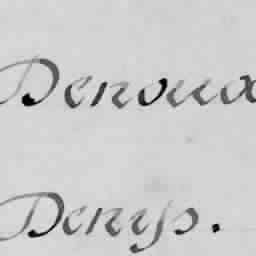 Denoux
Denys.